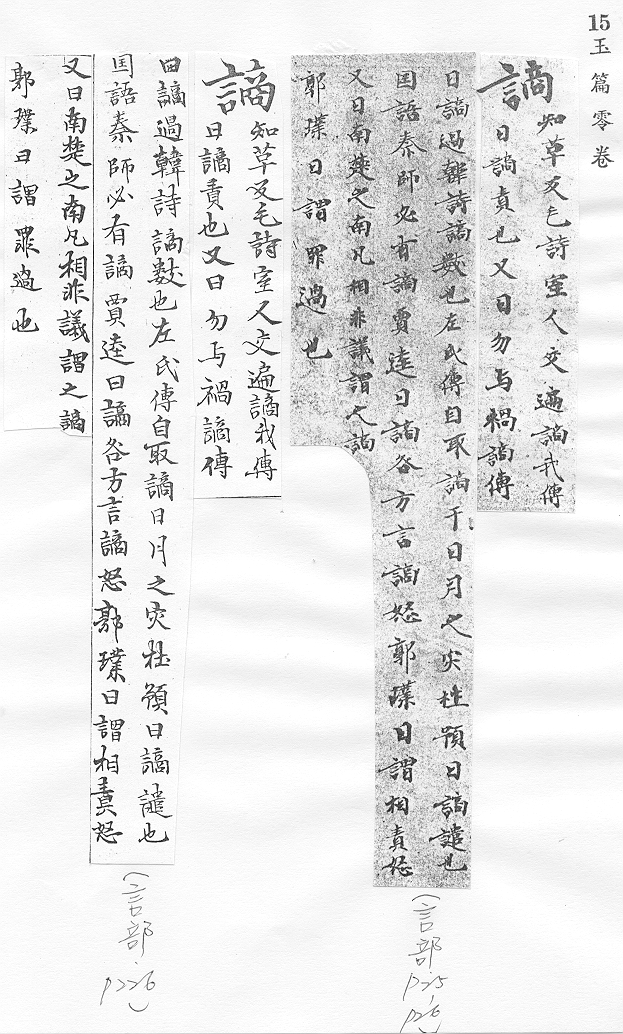 15玉篇零卷
謫知草反毛詩室人交遍謫我傳
曰謫責也又曰勿与禍謫傳
曰謫過韓詩謫數也左氏傳自取謫于日月之灾杜預曰謫譴也
国語秦師必有謫賈逵曰謫咎方言謫怒郭璞曰謂相責怒
又曰南楚之南凡相非議謂之謫
郭璞曰謂罪過也
(言部、p.25、p26)
謫知草反毛詩室人交遍謫我傳
曰謫責也又曰勿与禍謫傳
曰謫過韓詩謫數也左氏傳自取謫日月之灾杜預曰謫譴也
国語秦師必有謫賈逵曰謫咎方言謫怒郭璞曰謂相責怒
又曰南楚之南凡相非議謂之謫
郭璞曰謂罪過也
(言部、p226)